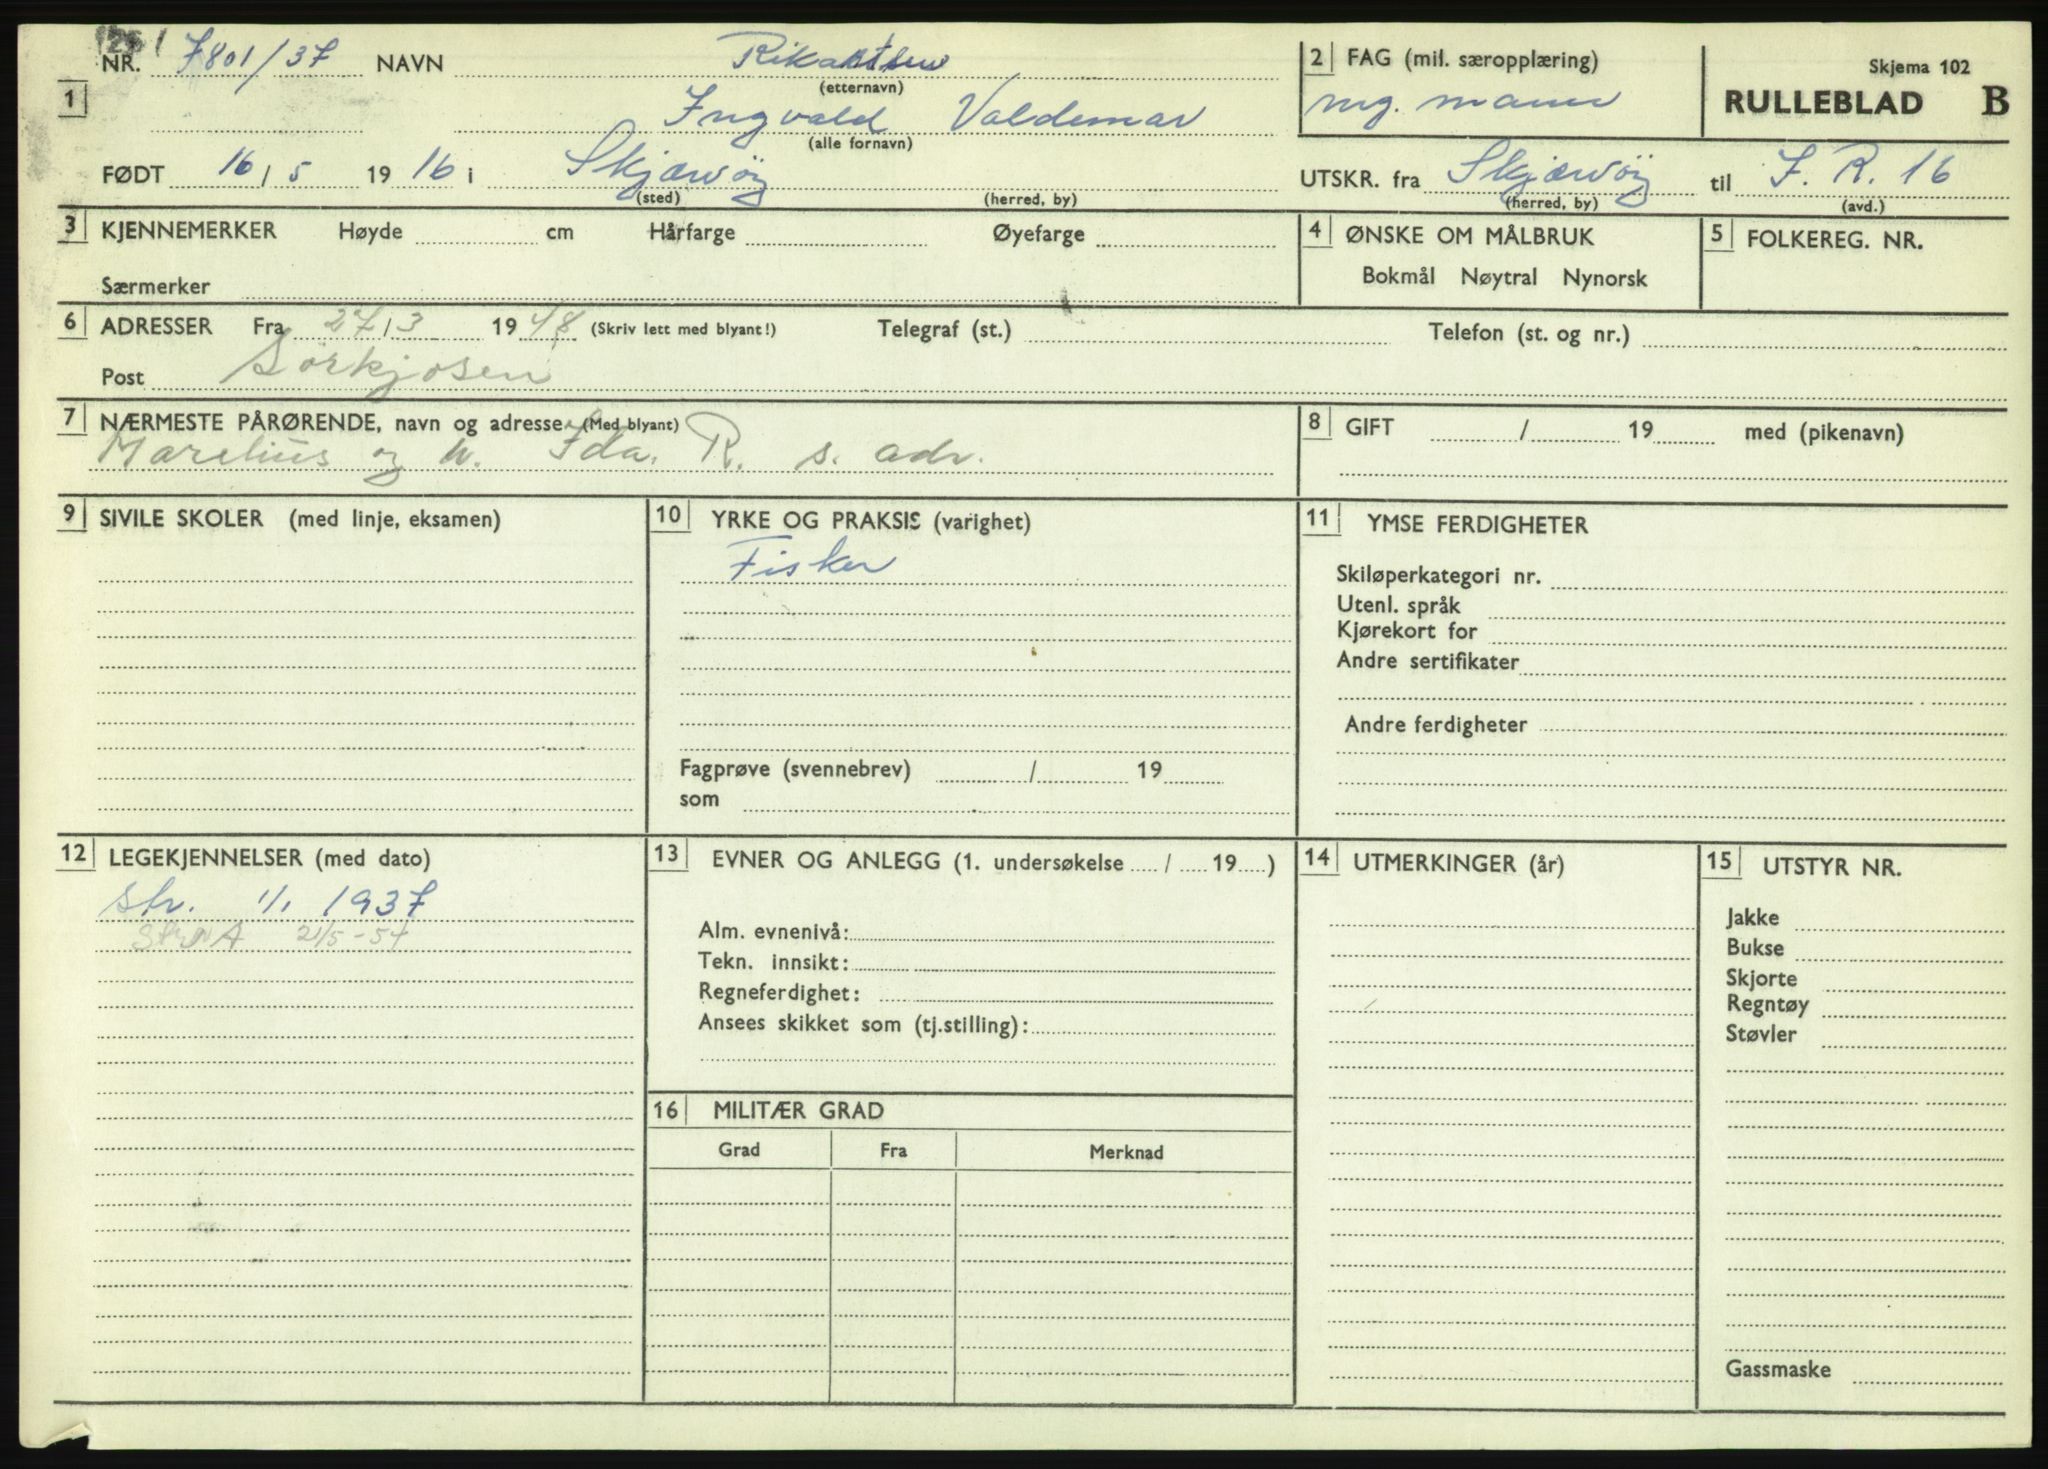 1251
NR. 7801/37 NAVN Rikartsen
(etternavn)
2 FAG (mil. særopplæring)
Skjema 102
1
Ingvald Valdemar
(alle fornavn)
mg. mann
RULLEBLAD B
FØDT 16/5 1916 i Skjærvöy
(sted) (herred, by)
UTSKR. fra Skjærvöy til I. R. 16
(herred, by) (avd.)
3 KJENNEMERKER Høyde cm Hårfarge Øyefarge
Særmerker
4 ØNSKE OM MÅLBRUK
Bokmål Nøytral Nynorsk
5 FOLKEREG. NR.
6 ADRESSER Fra 27/3 1948 (Skriv lett med blyant!) Telegraf (st.) Telefon (st. og nr.)
Post Sörkjosen
7 NÆRMESTE PÅRØRENDE, navn og adresse (Med blyant)
Marelius og h. Ida. R. s. adr.
8 GIFT / 19 med (pikenavn)
9 SIVILE SKOLER (med linje, eksamen)
10 YRKE OG PRAKSIS (varighet)
Fisker
Fagprøve (svennebrev) / 19
som
11 YMSE FERDIGHETER
Skiløperkategori nr.
Utenl. språk
Kjørekort for
Andre sertifikater
Andre ferdigheter
12 LEGEKJENNELSER (med dato)
Str. 1/1 1937
21/5-54
13 EVNER OG ANLEGG (1. undersøkelse / 19 )
Alm. evnenivå:
Tekn. innsikt:
Regneferdighet:
Ansees skikket som (tj.stilling):
14 UTMERKINGER (år)
15 UTSTYR NR.
Jakke
Bukse
Skjorte
Regntøy
Støvler
Gassmaske
16 MILITÆR GRAD
Grad Fra Merknad